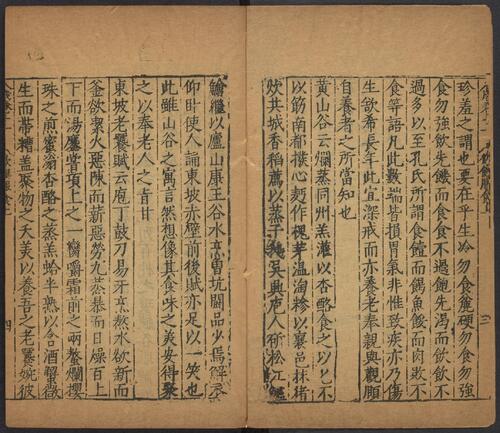 珍羞之謂也要在乎生冷勿食麄硬勿食勿強
食勿強飲先饑而食食不過飽先渴而飲飲不
過多以至孔氏所謂食饐而餲魚餒而肉敗不
食等語凡此數端皆損胃氣非惟致疾亦乃傷
生欲希長年此宜深戒而亦養老奉親與觀頤
自養者之所當知也
黃山谷云爛蒸同州羔灌以杏酪食之以匕不
以筯南都撥心麵作槐芽溫淘糝以襄邑抹猪
炊共城香稻薦以蒸子鵝吳興庖人斫松江鱸
鱠繼以廬山康王谷水烹曾坑鬬品少焉解衣
仰臥使人誦東坡赤壁前後賦亦足以一笑也
此雖山谷之寓言然想像其食味之美安得聚
之以奉老人之旨甘
東坡老饕賦云庖丁鼓刀易牙烹熬水欲新而
釜欲潔火惡陳而薪惡勞九蒸暴而日燥百上
下而湯鏖嘗項上之一臠嚼霜前之兩螯爛櫻
珠之煎蜜滃杏酪之蒸羔蛤半熟以含酒蟹微
生而帶糟蓋聚物之夭美以養吾之老饕婉彼
四